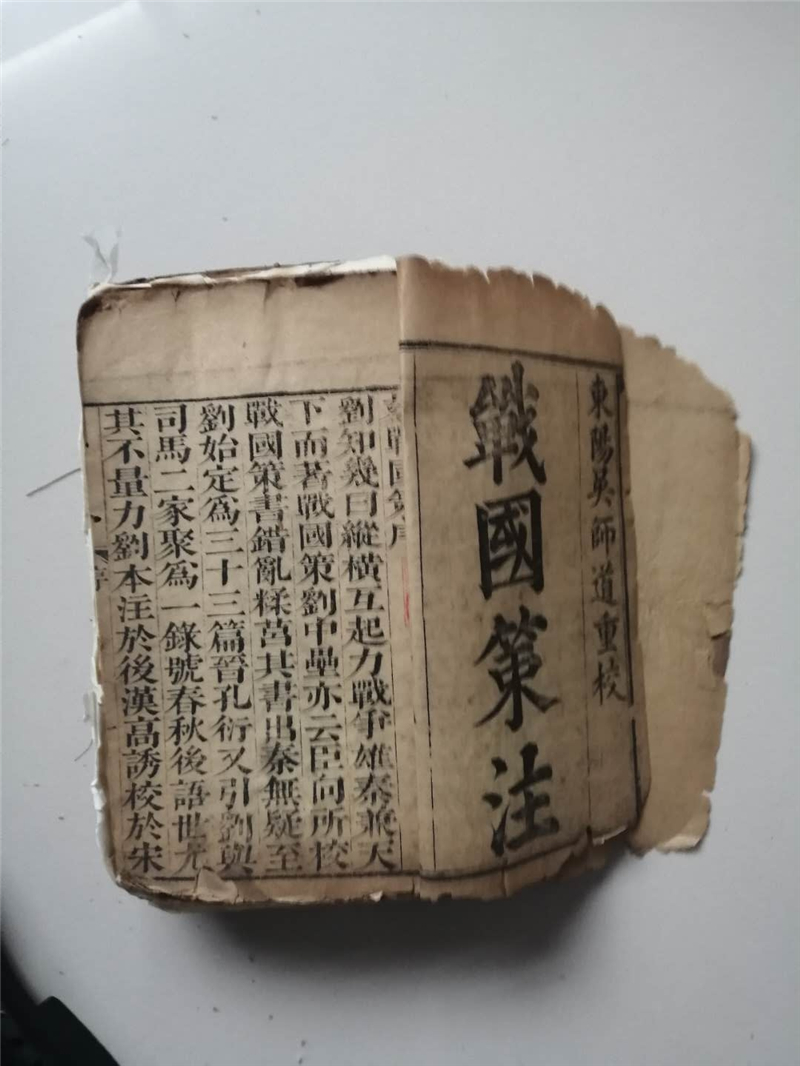 東陽吳師道重校
戰國策注
戰國策序
劉知幾曰縱橫互起力戰爭雄秦兼天
下而著戰國策劉中壘亦云臣向所校
戰國策書錯亂糅莒其書出秦無疑至
劉始定為三十三篇晉孔衍又引劉與
司馬二家聚為一錄號春秋後語世尤
其不量力劉本注於後漢高誘校於宋
序